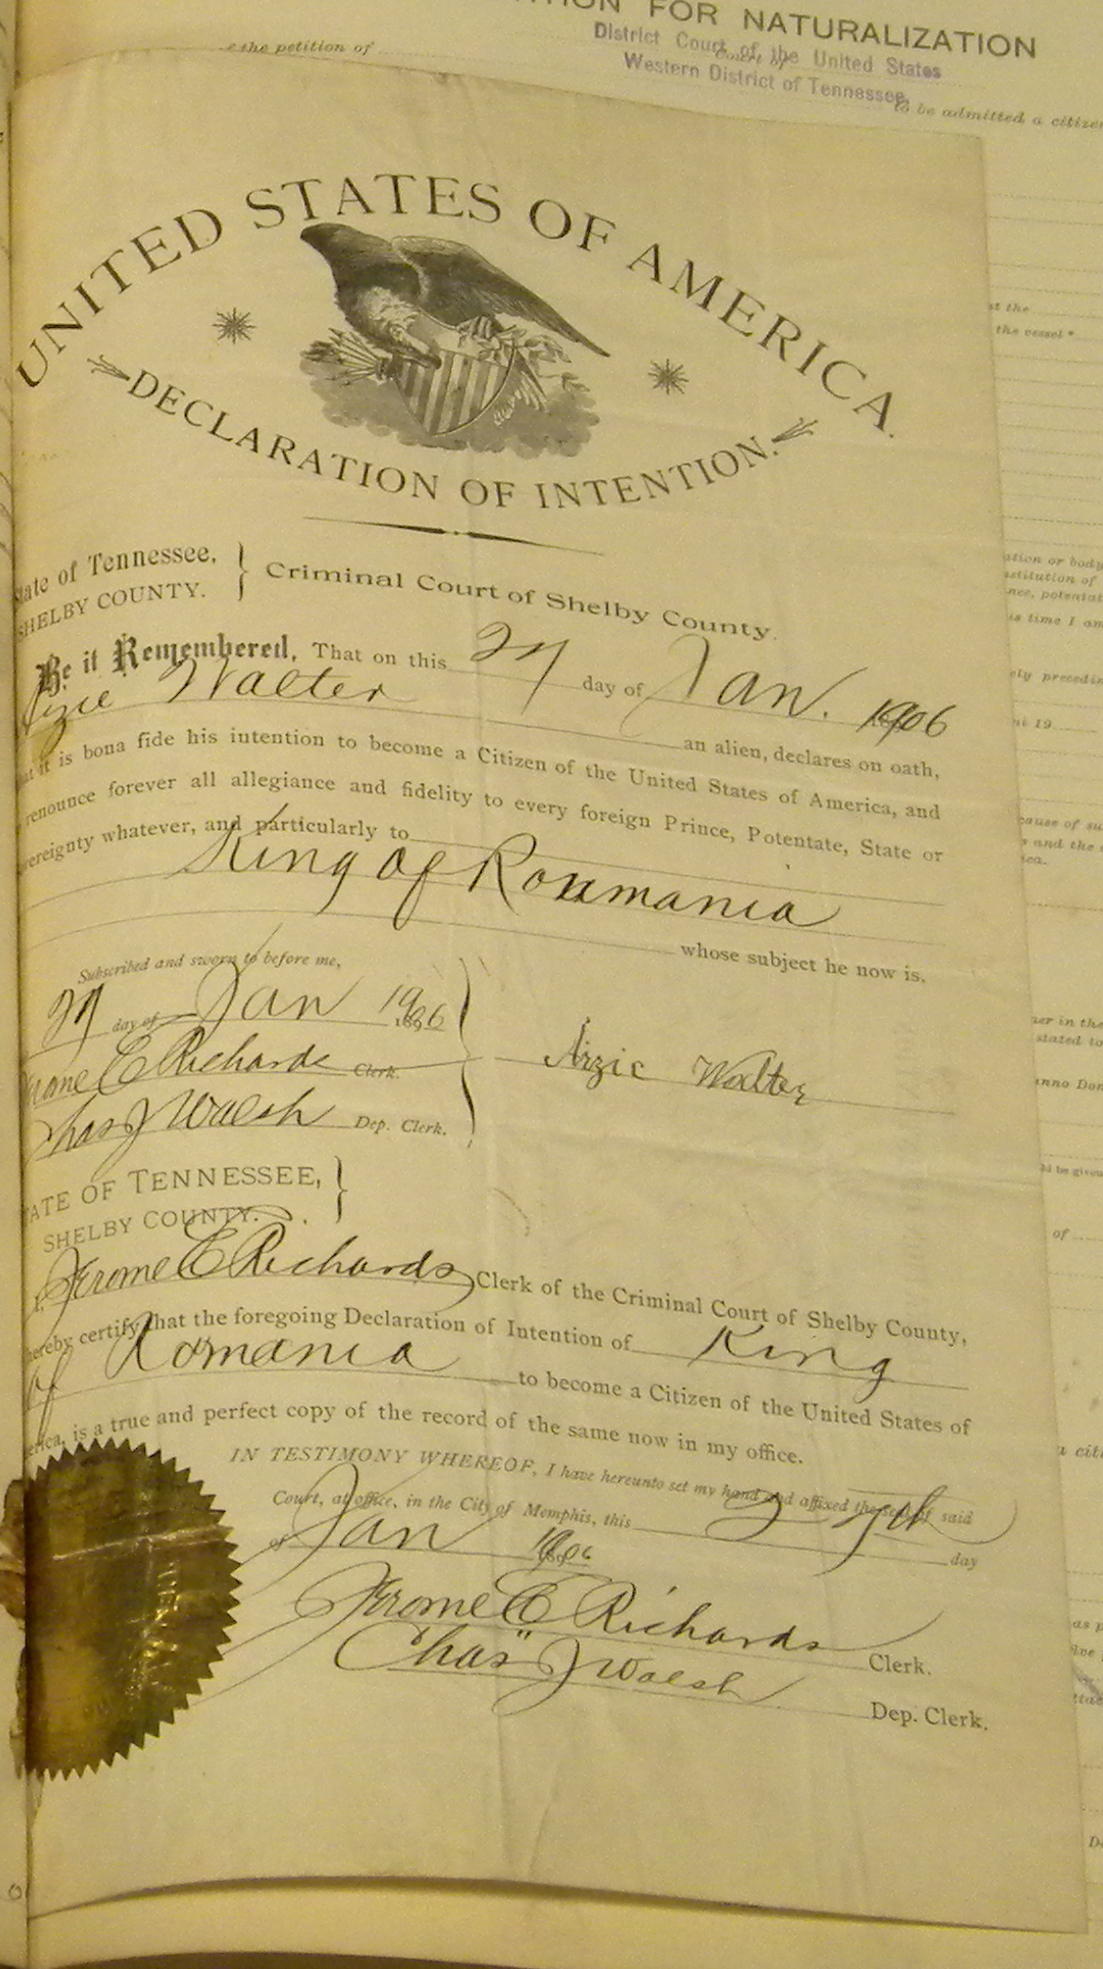 TION FOR NATURALIZATION
e the petition of
Court of
District Court of the United States
Western District of Tennessee,
to be admitted a citizen
UNITED STATES OF AMERICA.
DECLARATION OF INTENTION.
State of Tennessee,
SHELBY COUNTY.
Criminal Court of Shelby County.
Be it Remembered, That on this 27 day of Jan. 1906
Walter an alien, declares on oath,
that it is bona fide his intention to become a Citizen of the United States of America, and
renounce forever all allegiance and fidelity to every foreign Prince, Potentate, State or
vereignty whatever, and particularly to
King of Roumania
whose subject he now is.
Subscribed and sworn to before me,
27 day of Jan 1906
rome E Richards Clerk.
Chas J Walsh Dep. Clerk.
Arzie Walter
TATE OF TENNESSEE,
SHELBY COUNTY.
I, Jerome E Richards Clerk of the Criminal Court of Shelby County,
hereby certify that the foregoing Declaration of Intention of King
of Romania to become a Citizen of the United States of
erica, is a true and perfect copy of the record of the same now in my office.
IN TESTIMONY WHEREOF, I have hereunto set my hand and affixed the seal of said
Court, at office, in the City of Memphis, this 27th day
of Jan 1906
Jerome E Richards Clerk.
Chas" J Walsh Dep. Clerk.
st the
the vessel *
ation or body
nstitution of
nce, potentat
is time I am
ely precedin
19
cause of su
s and the
ica.
ner in the
stated to
nno Dom
ld be given
of
a citi
as p